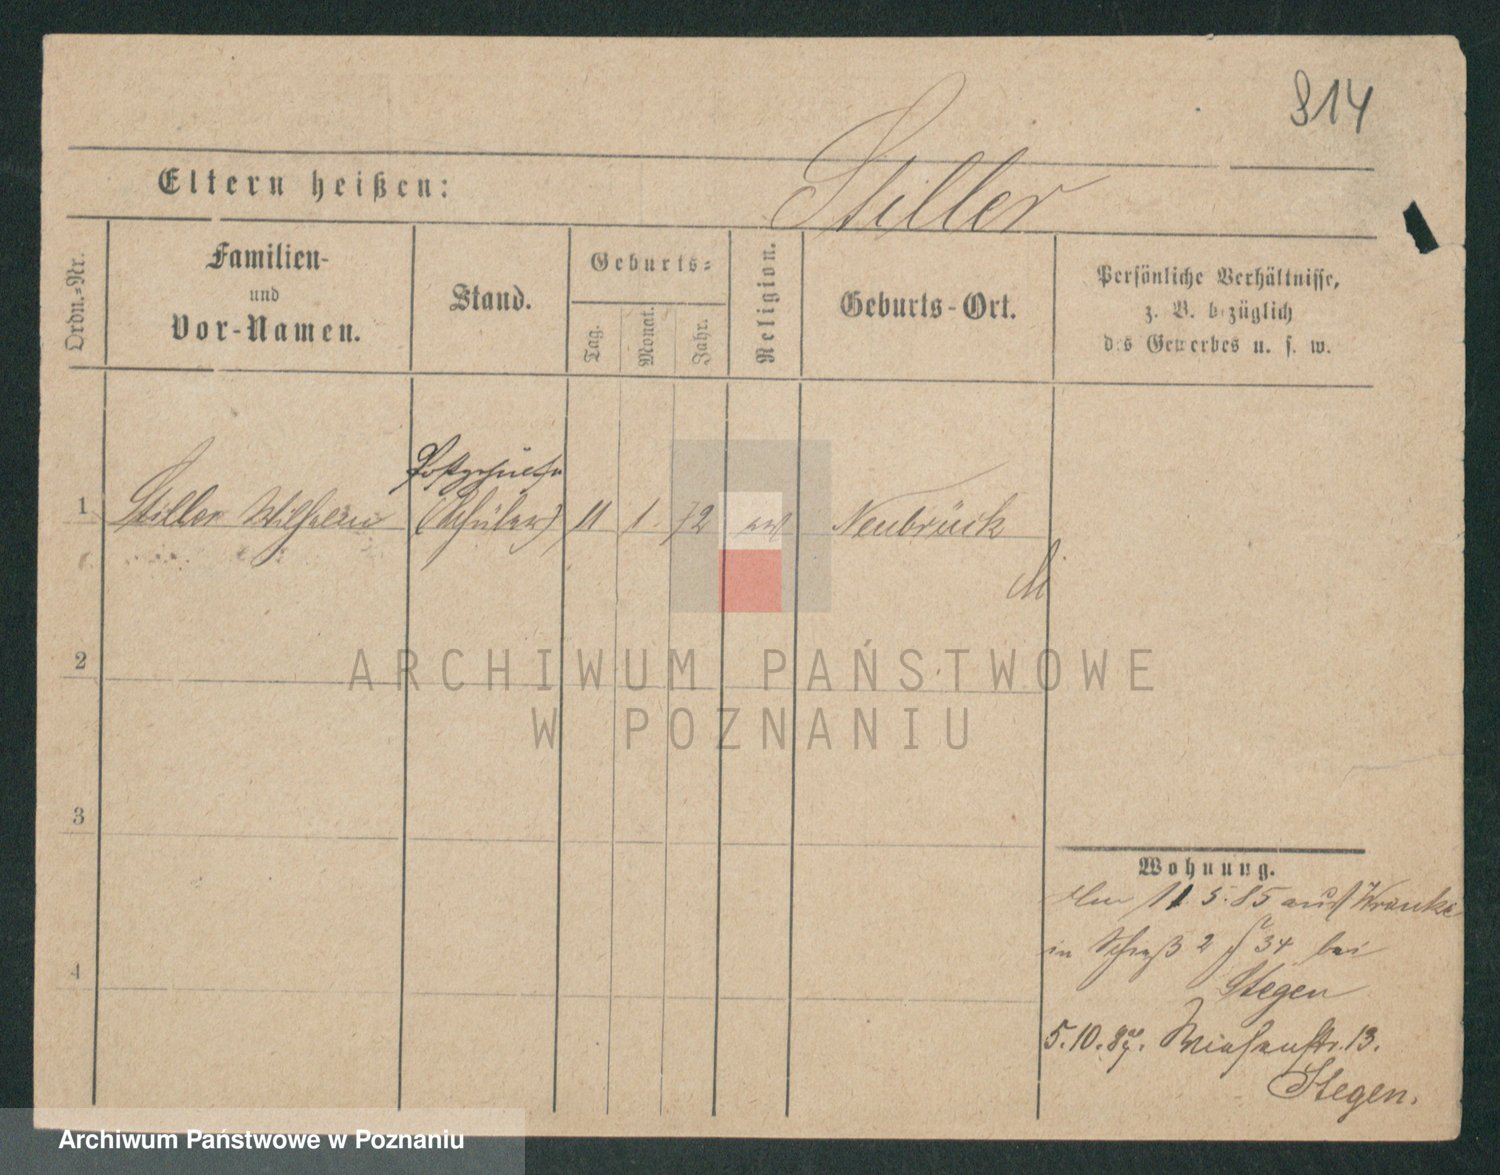 814
Eltern heißen:
Stiller
Ordn.-Nr.
Familien-
und
Vor-Namen.
Stand.
Geburts-
Tag.
Monat.
Jahr.
Religion.
Geburts-Ort.
Persönliche Verhältnisse,
z. B. bezüglich
des Gewerbes u. s. w.
1 Stiller Wilhelm (Schüler) 11 1. 72 Neubrück
2
3
4
ARCHIWUM PAŃSTWOWE
W POZNANIU
Wohnung.
11.5.85 aus Wronke
in 2 34 bei
Stegen
5.10.87. Wiesenstr. 13.
Stegen.
Archiwum Państwowe w Poznaniu